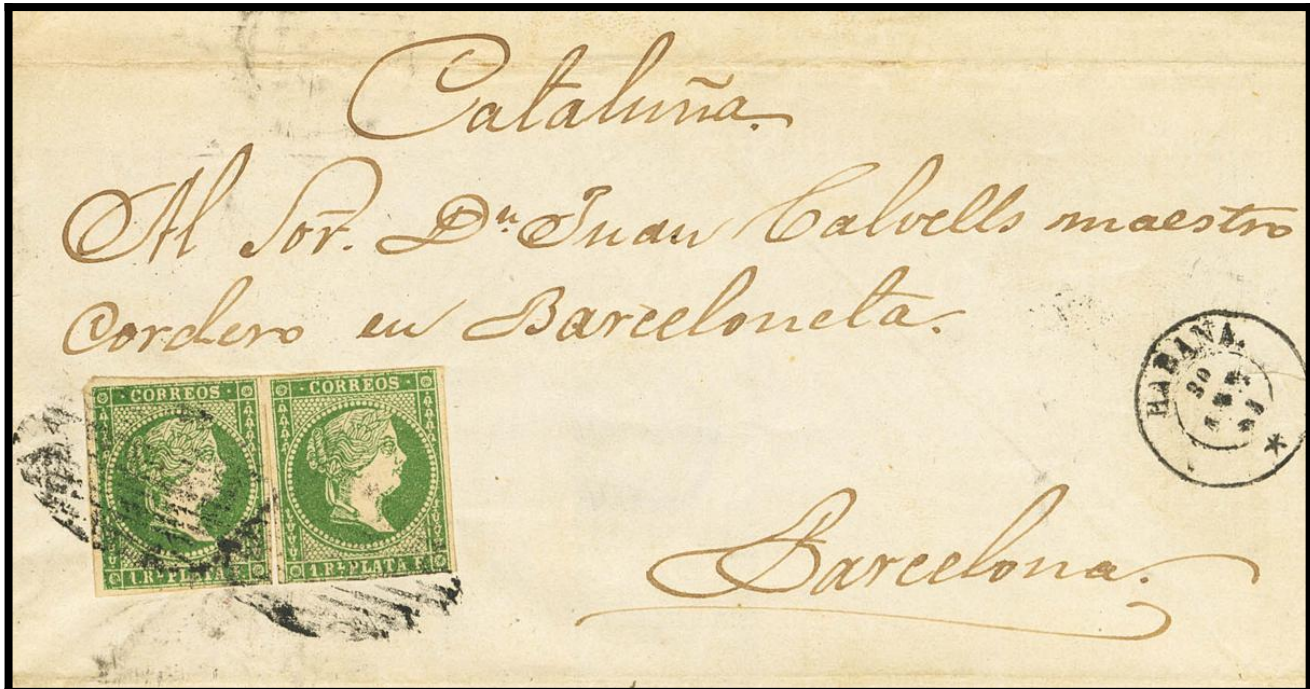 Cataluña.
Al Sor. Dn Juan Calvells maestro
Cordero en Barceloneta.
CORREOS
1 Rl. PLATA F.
CORREOS
1 Rl. PLATA F.
HABANA.
30
Barcelona.